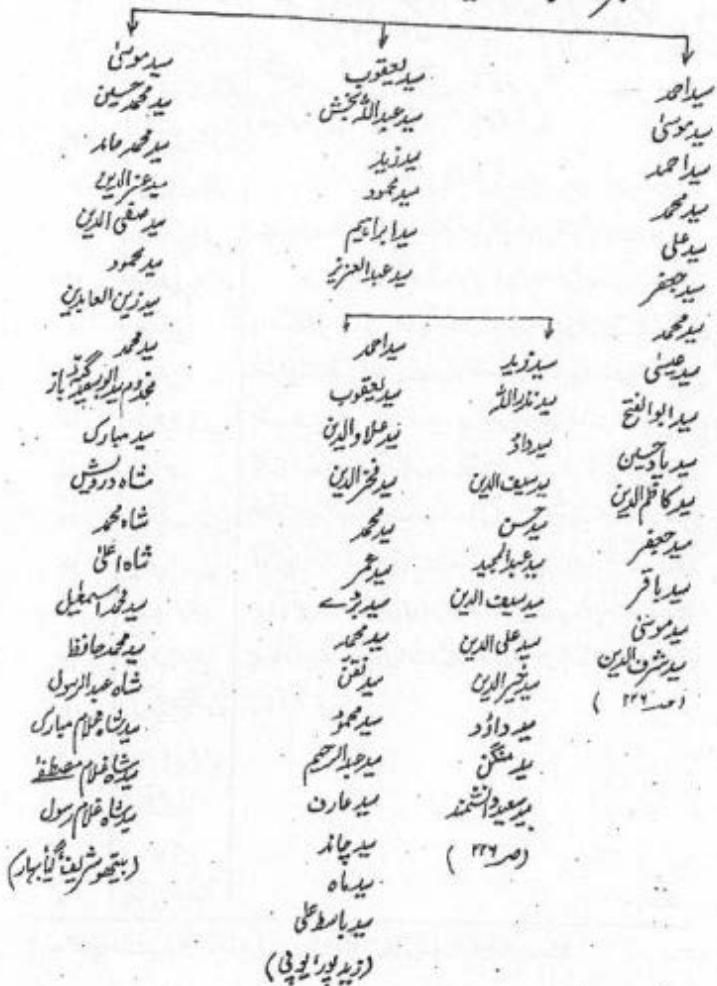 سید احمد
سید موسیٰ
سید احمد
سید محمد
سید علی
سید جعفر
سید محمد
سید عیسیٰ
سید ابوالفتح
سید یاد حسین
سید کاظم الدین
سید جعفر
سید باقر
سید موسیٰ
سید شرف الدین
(صـ ۲۲۶)
سید یعقوب
سید عبداللہ بخش
سید زید
سید محمود
سید ابراہیم
سید عبدالعزیز
سید زید
سید نادراللہ
سید داؤد
سید سیف الدین
سید حسن
سید عبدالمجید
سید سیف الدین
سید علی الدین
سید الدین
سید داؤد
سید منگن
سید سعید دانشمند
(صـ ۲۲۶)
سید احمد
سید یعقوب
سید علاوالدین
سید فخرالدین
سید محمد
سید عمر
سید بڑے
سید محمد
سید نتھن
سید محمود
سید عبدالرحیم
سید عارف
سید چاند
سید ماہ
سید باسط علی
(زید پور، یوپی)
سید موسیٰ
سید محمد حسین
سید محمد حامد
سید عزالدین
سید صفی الدین
سید محمود
سید زین العابدین
سید محمد
مخدوم سید ابوسعید گرد باز
سید مبارک
شاہ درویش
شاہ محمد
شاہ اعلیٰ
سید محمد اسمٰعیل
سید محمد حافظ
شاہ عبدالرسول
سید شاہ غلام مبارک
سید شاہ غلام مصطفےٰ
سید شاہ غلام رسول
(بیتھو شریف، گیا بہار)